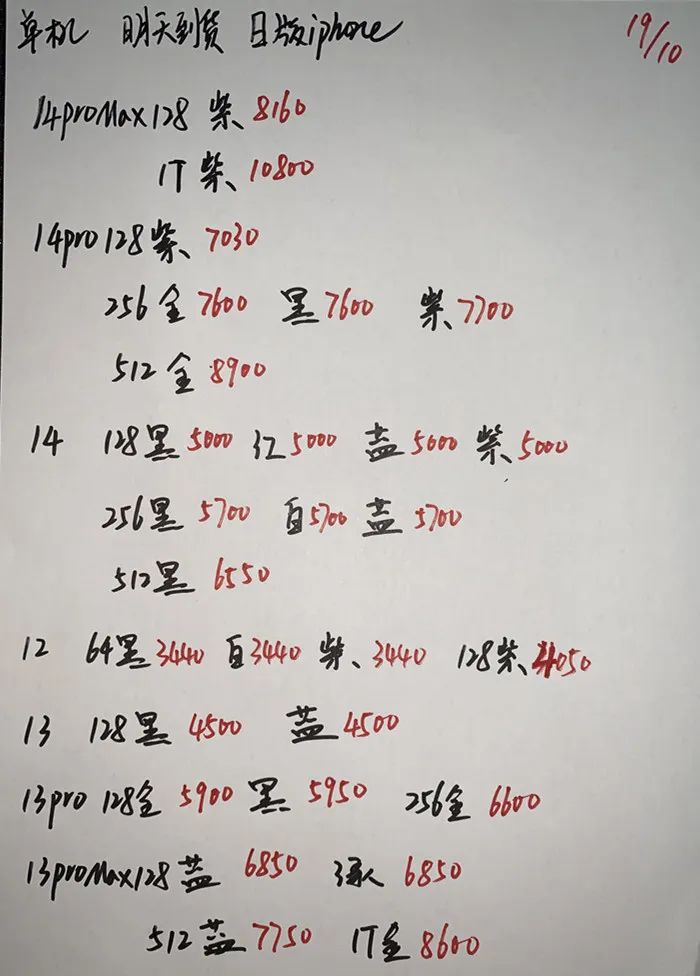 单机 明天到货 日版iphone 19/10
14proMax128 紫 8160
1T 紫 10800
14pro 128 紫 7030
256 金 7600 黑 7600 紫 7700
512 金 8900
14 128 黑 5000 红 5000 蓝 5000 紫 5000
256 黑 5700 白 5700 蓝 5700
512 黑 6550
12 64 黑 3440 白 3440 紫 3440 128 紫 4050
13 128 黑 4500 蓝 4500
13pro 128 金 5900 黑 5950 256 金 6600
13proMax128 蓝 6850 绿 6850
512 蓝 7750 1T 金 8600